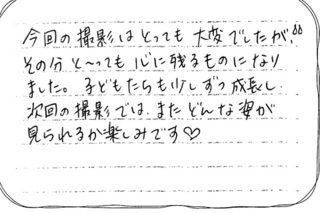 今回の撮影はとっても大変でしたが、
その分と〜っても心に残るものになり
ました。子どもたちも少しずつ成長し
次回の撮影では、またどんな姿が
見られるか楽しみです♡